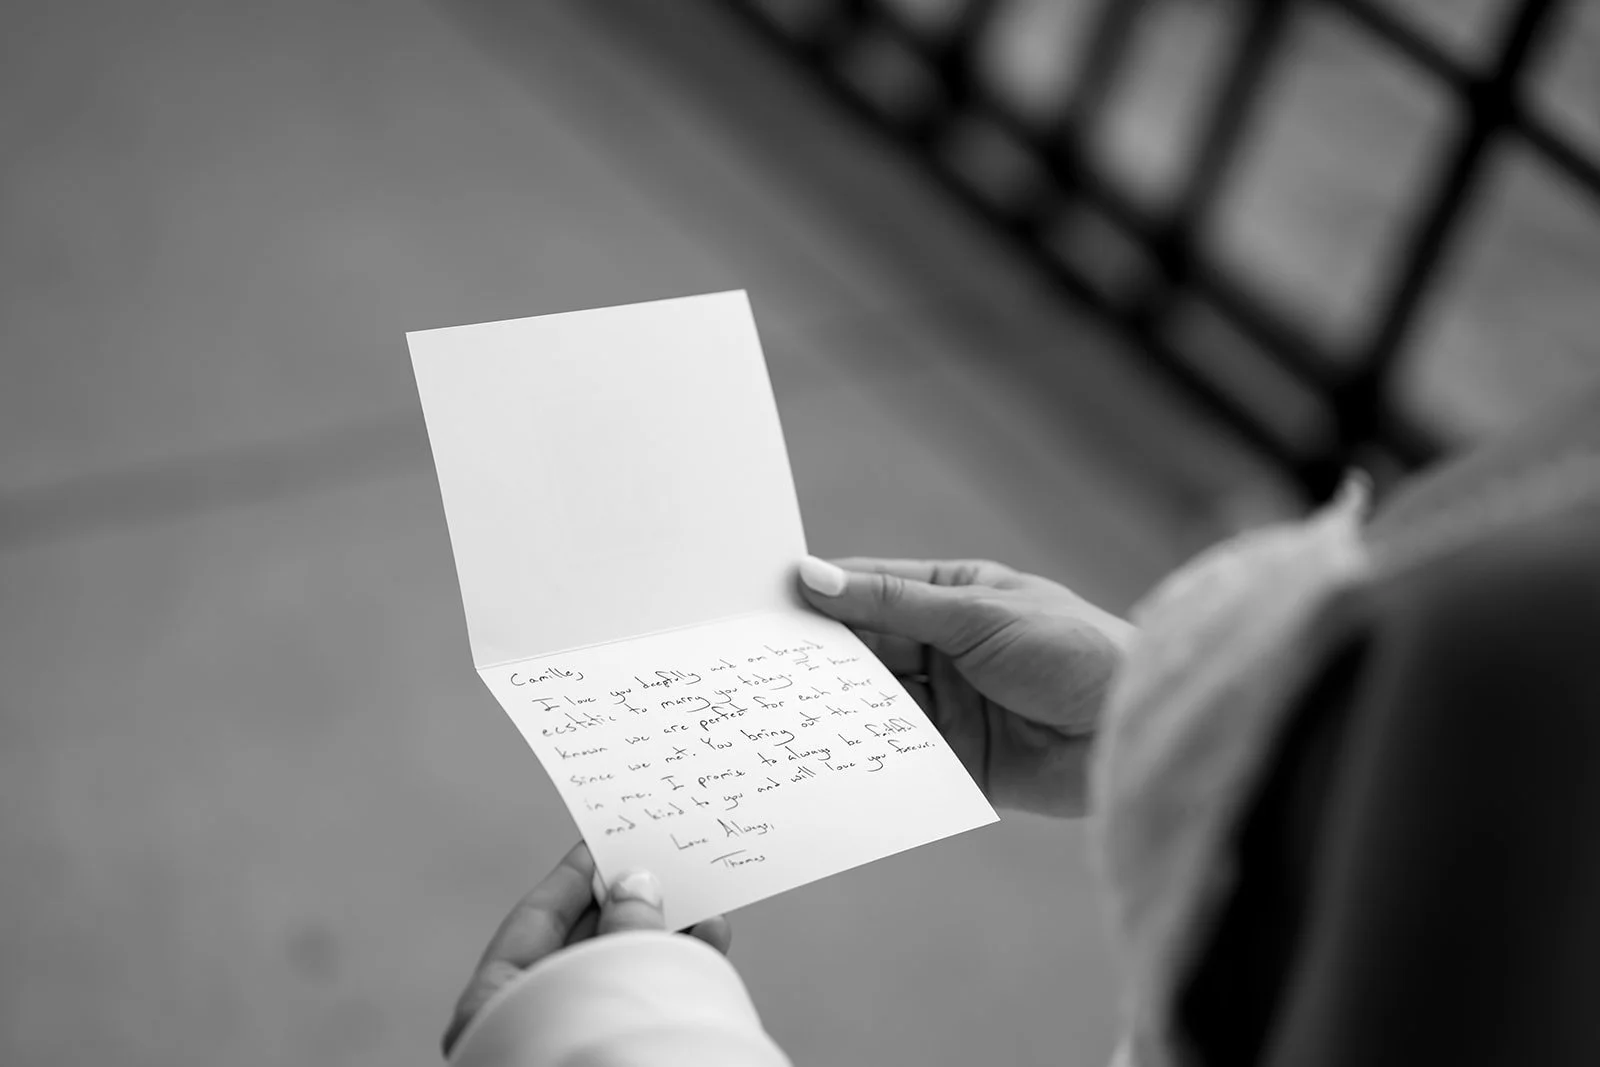 Camille,
I love you deepfully and am beyond
ecstatic to marry you today. I have
known we are perfect for each other
since we met. You bring out the best
in me. I promise to always be faithful
and kind to you and will love you forever.
Love Always,
Thomas